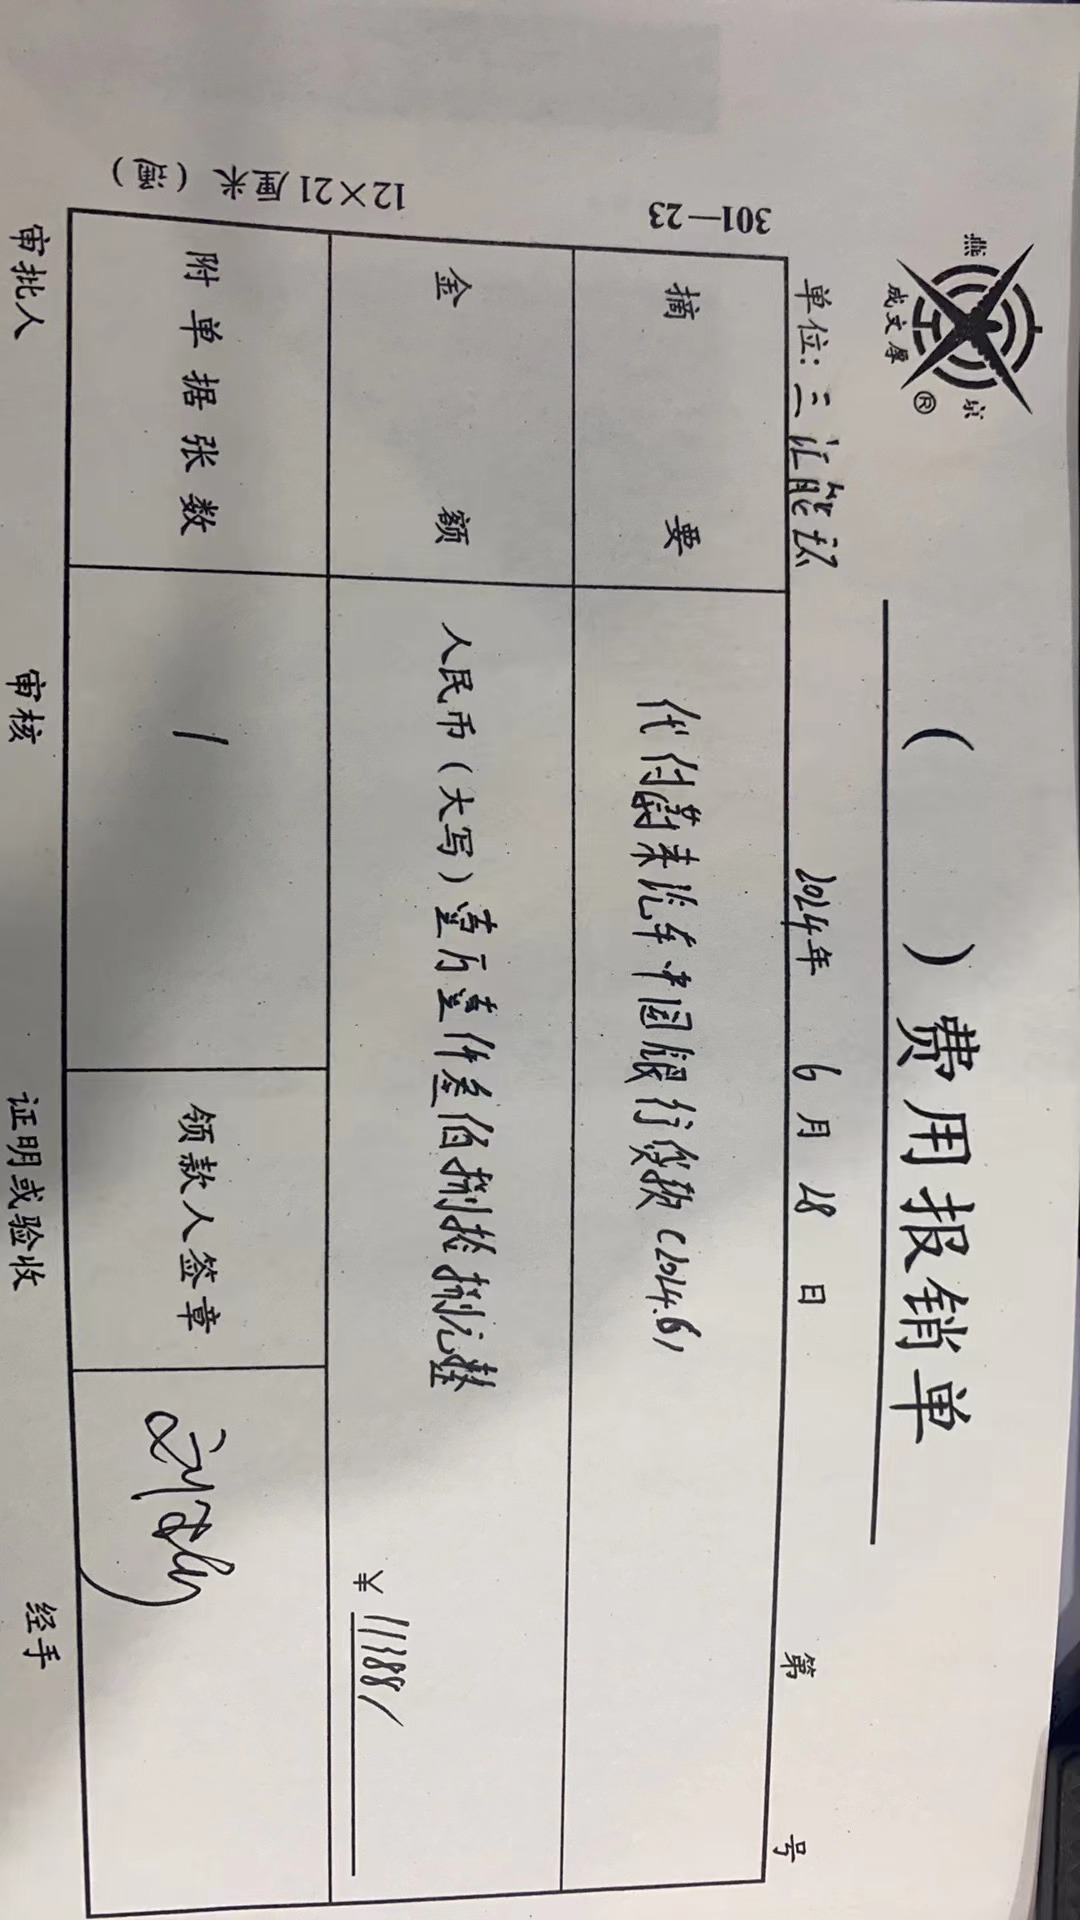 燕京
成文厚
®
( ) 费用报销单
单位: 三汇能源 2024年 6月 28日 第 号
摘要 代付蔚来汽车中国银行贷款(2024.6)
金额 人民币(大写)壹万壹仟叁佰捌拾捌元整
¥ 11388/
附单据张数 1 领款人签章
审批人 审核 证明或验收 经手
301—23
12×21厘米(通)